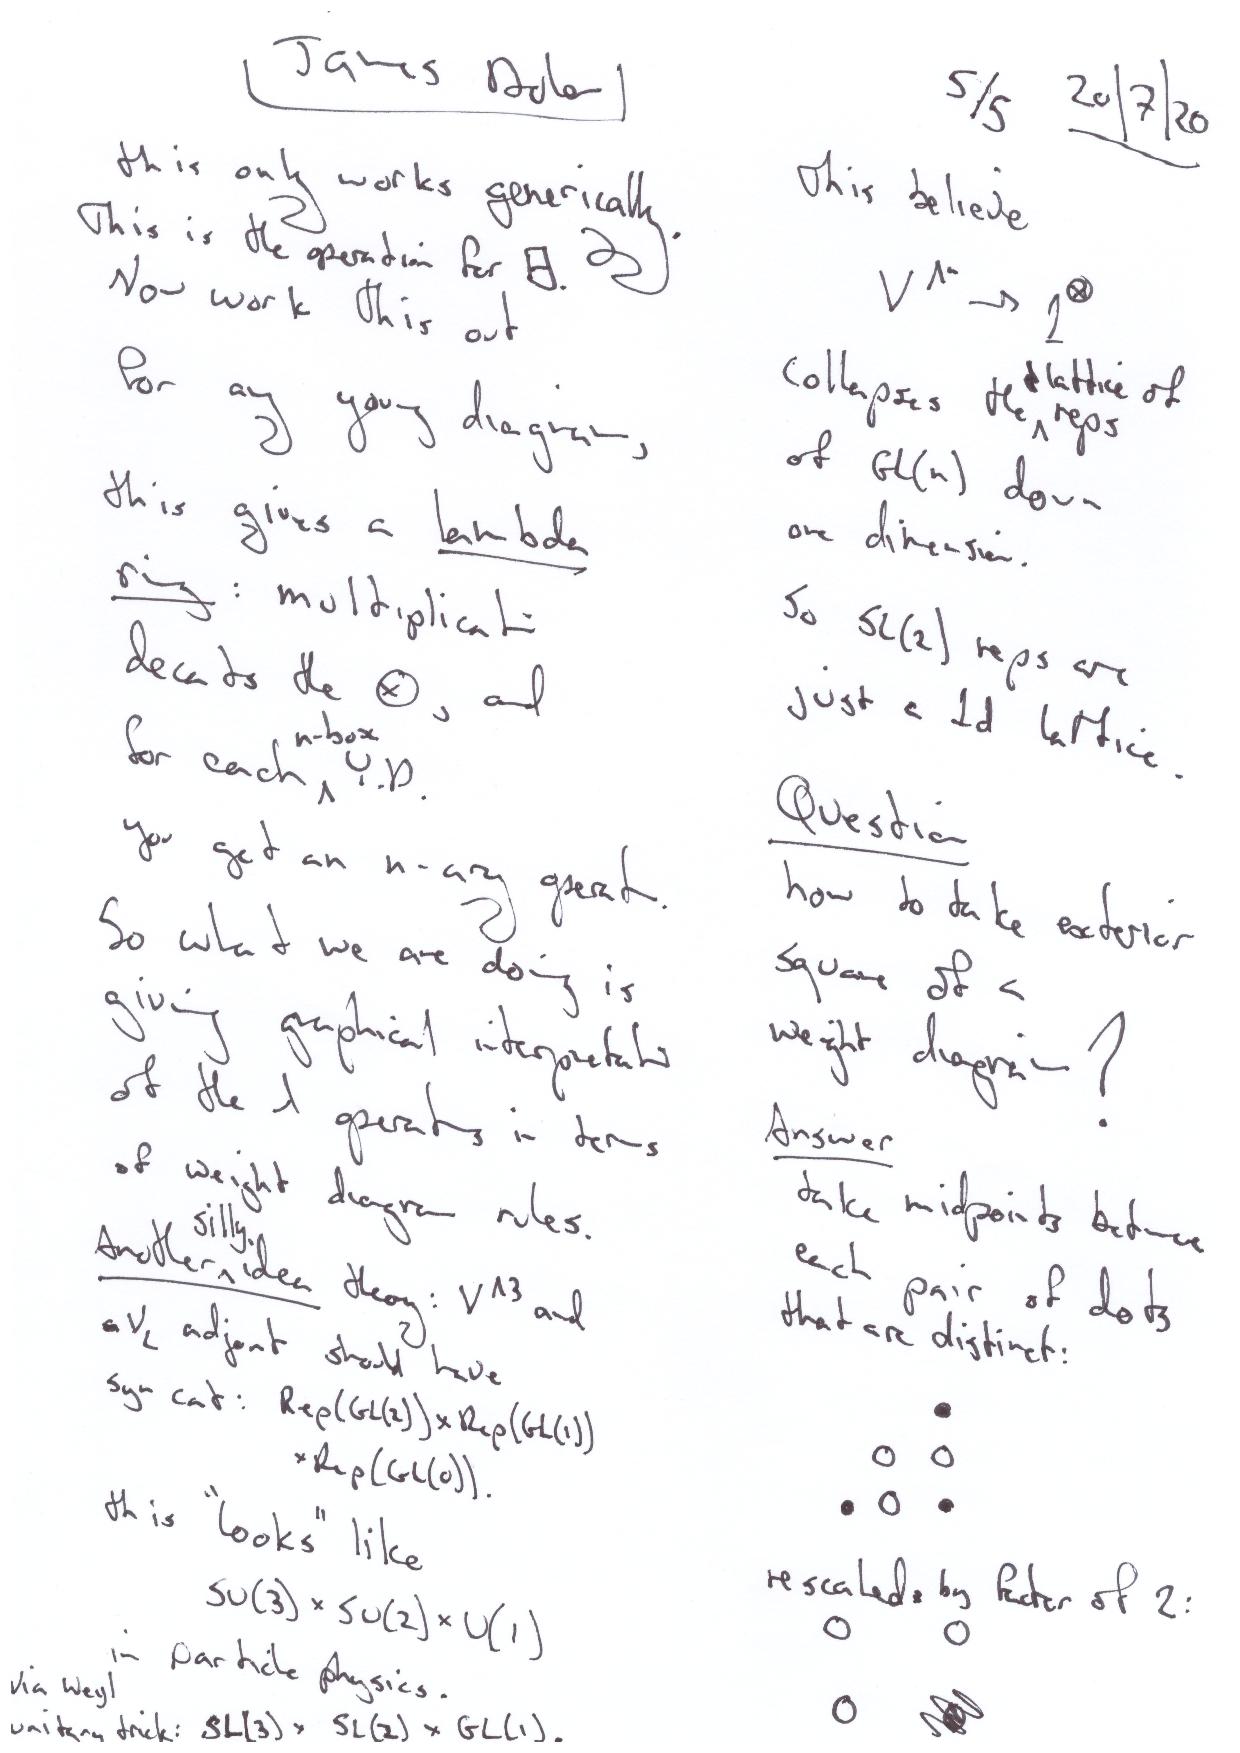 James Dolan
5/5 20/7/20
this only works generically.
This is the operation for
Now work this out
for any young diagram,
this gives a lambda
ring: multiplicati
decats the ⊗, and
for each n-box Y.D.
you get an n-ary operat.
So what we are doing is
giving graphical interpretati
of the λ operatns in terms
of weight diagram rules.
Another silly idea theory: V^Λ3 and
adjoint should have
sym cat: Rep(GL(2)) × Rep(GL(1))
× Rep(GL(0)).
this "looks" like
SU(3) × SU(2) × U(1)
in particle physics.
via Weyl
unitary trick: SL(3) × SL(2) × GL(1).
This believe
V^Λn → 1^⊗
Collapses the lattice of reps
of GL(n) down
one dimension.
So SL(2) reps are
just a 1d lattice.
Question
how to take exterior
square of a
weight diagram?
Answer
take midpoints between
each pair of dots
that are distinct:
rescaled by factor of 2: